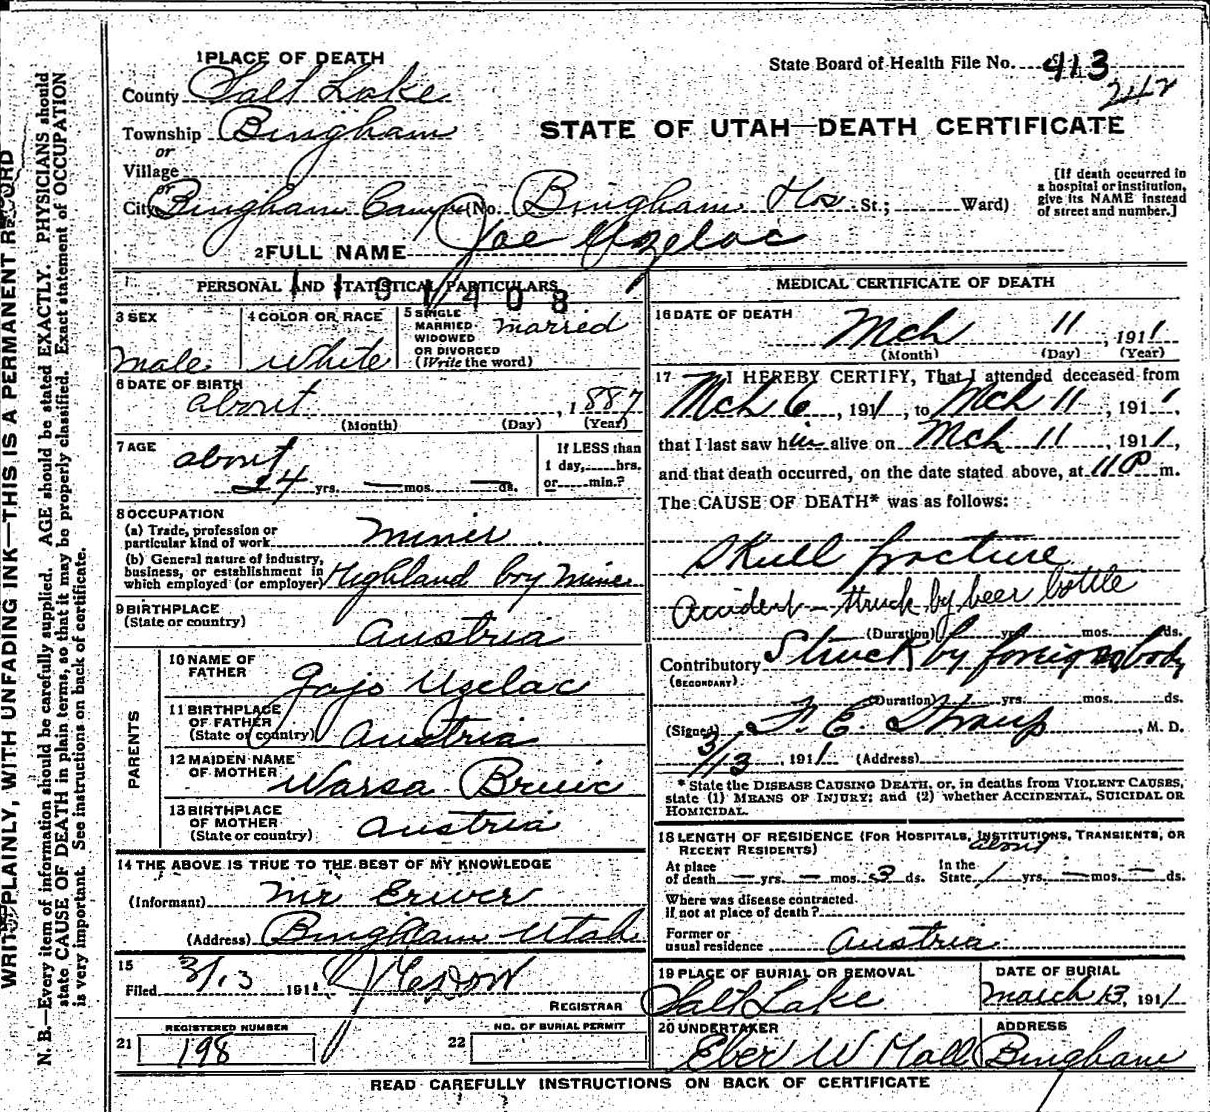 1 PLACE OF DEATH
State Board of Health File No. 413
2112
County Salt Lake
Township Bingham
STATE OF UTAH—DEATH CERTIFICATE
or
Village
or
City Bingham Canyon (No. Bingham Hos St.; Ward)
[If death occurred in a hospital or institution, give its NAME instead of street and number.]
2 FULL NAME Joe Uzelac
PERSONAL AND STATISTICAL PARTICULARS
1101408
3 SEX
Male
4 COLOR OR RACE
White
5 SINGLE MARRIED WIDOWED OR DIVORCED (Write the word)
married
6 DATE OF BIRTH
about , 1887
(Month) (Day) (Year)
7 AGE
about
24 yrs. — mos. — ds.
If LESS than 1 day, hrs. or min.?
8 OCCUPATION
(a) Trade, profession or particular kind of work Miner
(b) General nature of industry, business, or establishment in which employed (or employer) Highland boy Mine
9 BIRTHPLACE
(State or country) Austria
PARENTS
10 NAME OF FATHER Gajo Uzelac
11 BIRTHPLACE OF FATHER (State or country) Austria
12 MAIDEN NAME OF MOTHER Warsa
13 BIRTHPLACE OF MOTHER (State or country) Austria
14 THE ABOVE IS TRUE TO THE BEST OF MY KNOWLEDGE
(Informant) Mr
(Address) Bingham Utah
15
Filed 3/13 1911
REGISTRAR
REGISTERED NUMBER
21 198
NO. OF BURIAL PERMIT
22
MEDICAL CERTIFICATE OF DEATH
16 DATE OF DEATH
Mch 11 , 1911
(Month) (Day) (Year)
17 I HEREBY CERTIFY, That I attended deceased from
Mch 6 , 1911, to Mch 11 , 1911,
that I last saw him alive on Mch 11 , 1911,
and that death occurred, on the date stated above, at 11 P m.
The CAUSE OF DEATH* was as follows:
Skull fracture
Accident - struck by beer bottle
(Duration) yrs. mos. ds.
Contributory Struck by foreign body
(SECONDARY)
(Duration) yrs. mos. ds.
(Signed) F. E. Straup , M. D.
3/13 , 1911 (Address)
* State the DISEASE CAUSING DEATH, or, in deaths from VIOLENT CAUSES, state (1) MEANS OF INJURY; and (2) whether ACCIDENTAL, SUICIDAL OR HOMICIDAL.
18 LENGTH OF RESIDENCE (FOR HOSPITALS, INSTITUTIONS, TRANSIENTS, OR RECENT RESIDENTS)
about
At place of death — yrs. — mos. 3 ds. In the State 1 yrs. — mos. — ds.
Where was disease contracted, if not at place of death?
Former or usual residence Austria
19 PLACE OF BURIAL OR REMOVAL
Salt Lake
DATE OF BURIAL
March 13, 1911
20 UNDERTAKER
Eber W Hall
ADDRESS
Bingham
READ CAREFULLY INSTRUCTIONS ON BACK OF CERTIFICATE
WRITE PLAINLY, WITH UNFADING INK—THIS IS A PERMANENT RECORD
N. B.—Every item of information should be carefully supplied. AGE should be stated EXACTLY. PHYSICIANS should
state CAUSE OF DEATH in plain terms, so that it may be properly classified. Exact statement of OCCUPATION
is very important. See instructions on back of certificate.